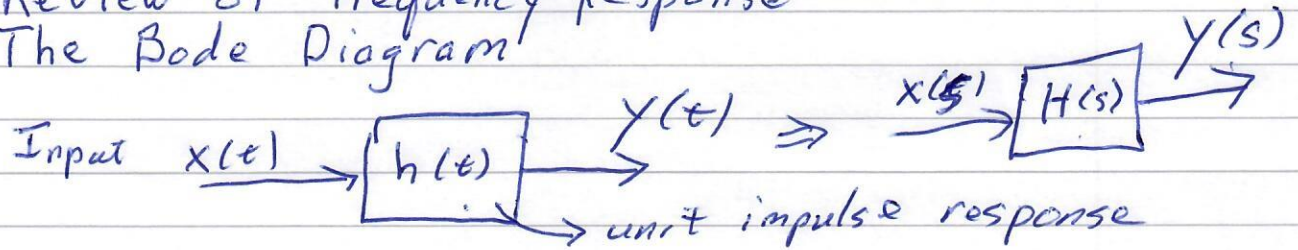 Review of frequency response
The Bode Diagram
Input x(t) h(t) y(t) ⇒ x(s) H(s) y(s)
unit impulse response